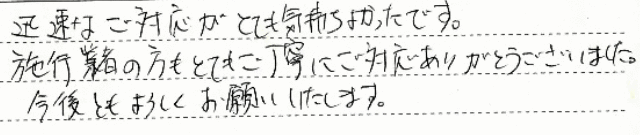 迅速なご対応がとても気持ちよかったです。
施行業者の方もとてもご丁寧にご対応ありがとうございました。
今後ともよろしくお願いいたします。